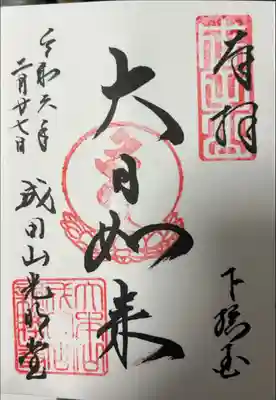 奉拝
下総国
大日如来
令和六年
二月廿七日
成田山光明堂